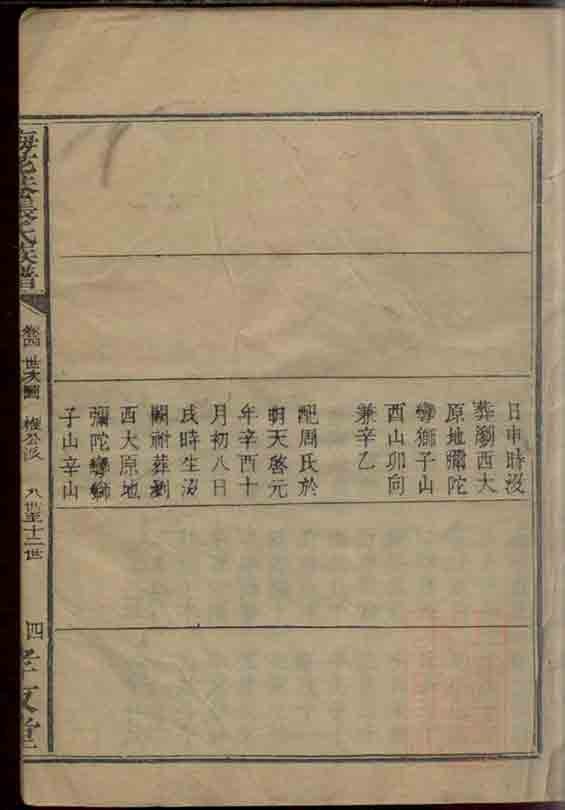 日申時沒
葬瀏西大
原地彌陀
巒獅子山
酉山卯向
兼辛乙
配周氏於
明天啓元
年辛酉十
月初八日
戌時生沒
闕祔葬瀏
西大原地
彌陀巒獅
子山辛山
氏族譜
卷四 世次圖 公派 八世至十二世
四
孝友堂